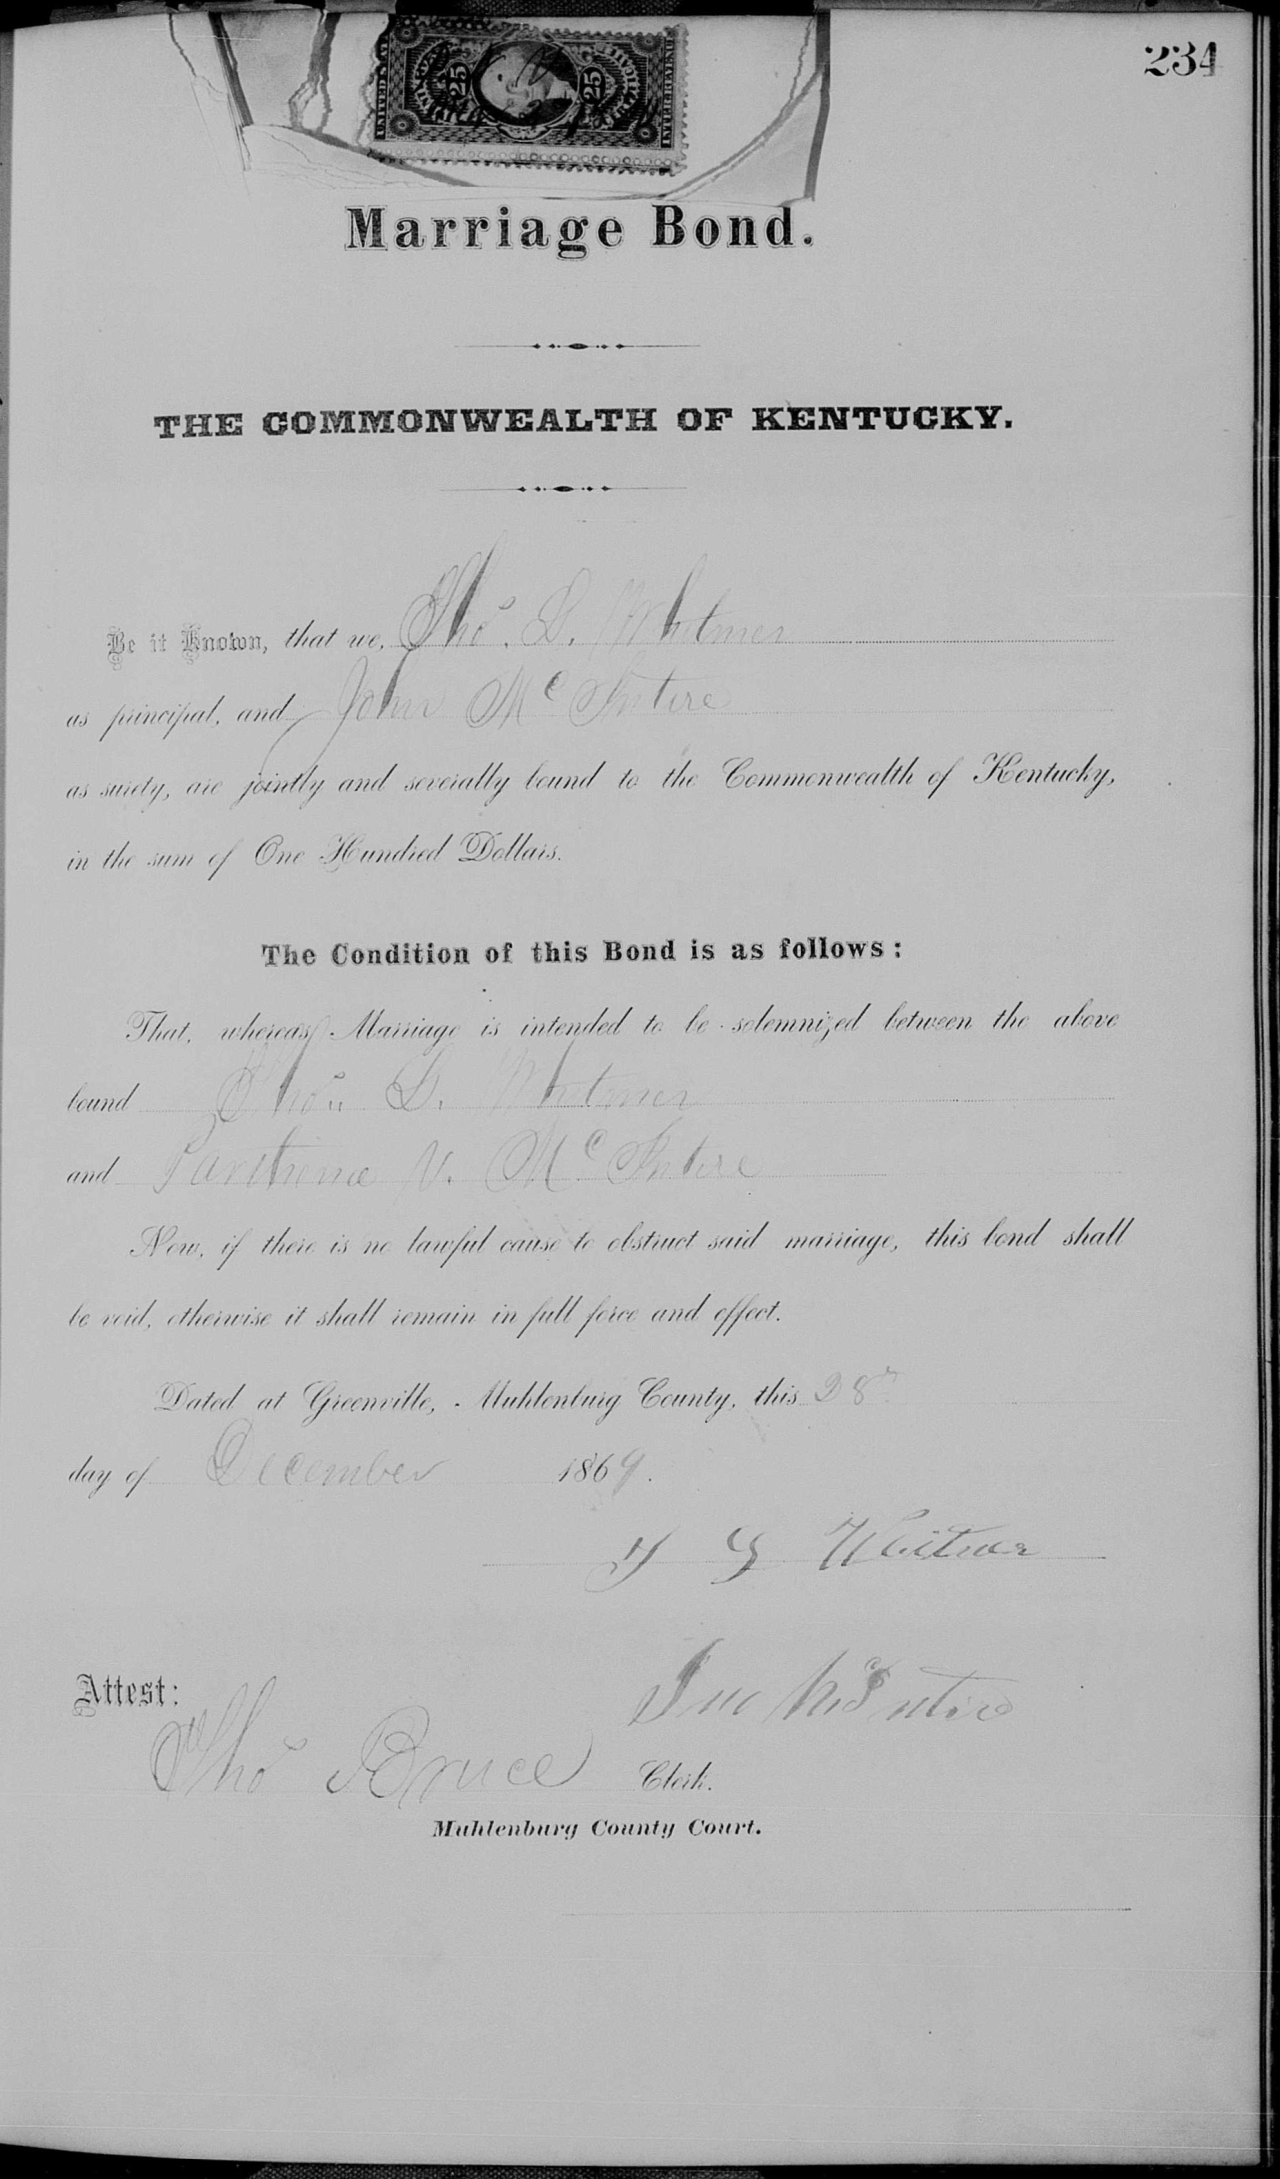 234
UNITED STATES
INTER. REVENUE
25 25
Marriage Bond.
THE COMMONWEALTH OF KENTUCKY.
Be it Known, that we, Tho.s S. Whitmer
as principal, and John McIntire
as surety, are jointly and severally bound to the Commonwealth of Kentucky,
in the sum of One Hundred Dollars.
The Condition of this Bond is as follows:
That, whereas, Marriage is intended to be solemnized between the above
bound Tho.s S. Whitmer
and Parthena V. McIntire
Now, if there is no lawful cause to obstruct said marriage, this bond shall
be void, otherwise it shall remain in full force and effect.
Dated at Greenville, Muhlenburg County, this 28th
day of December 1869.
Whitmer
Jno McIntire
Attest:
Thos Bruce Clerk.
Muhlenburg County Court.